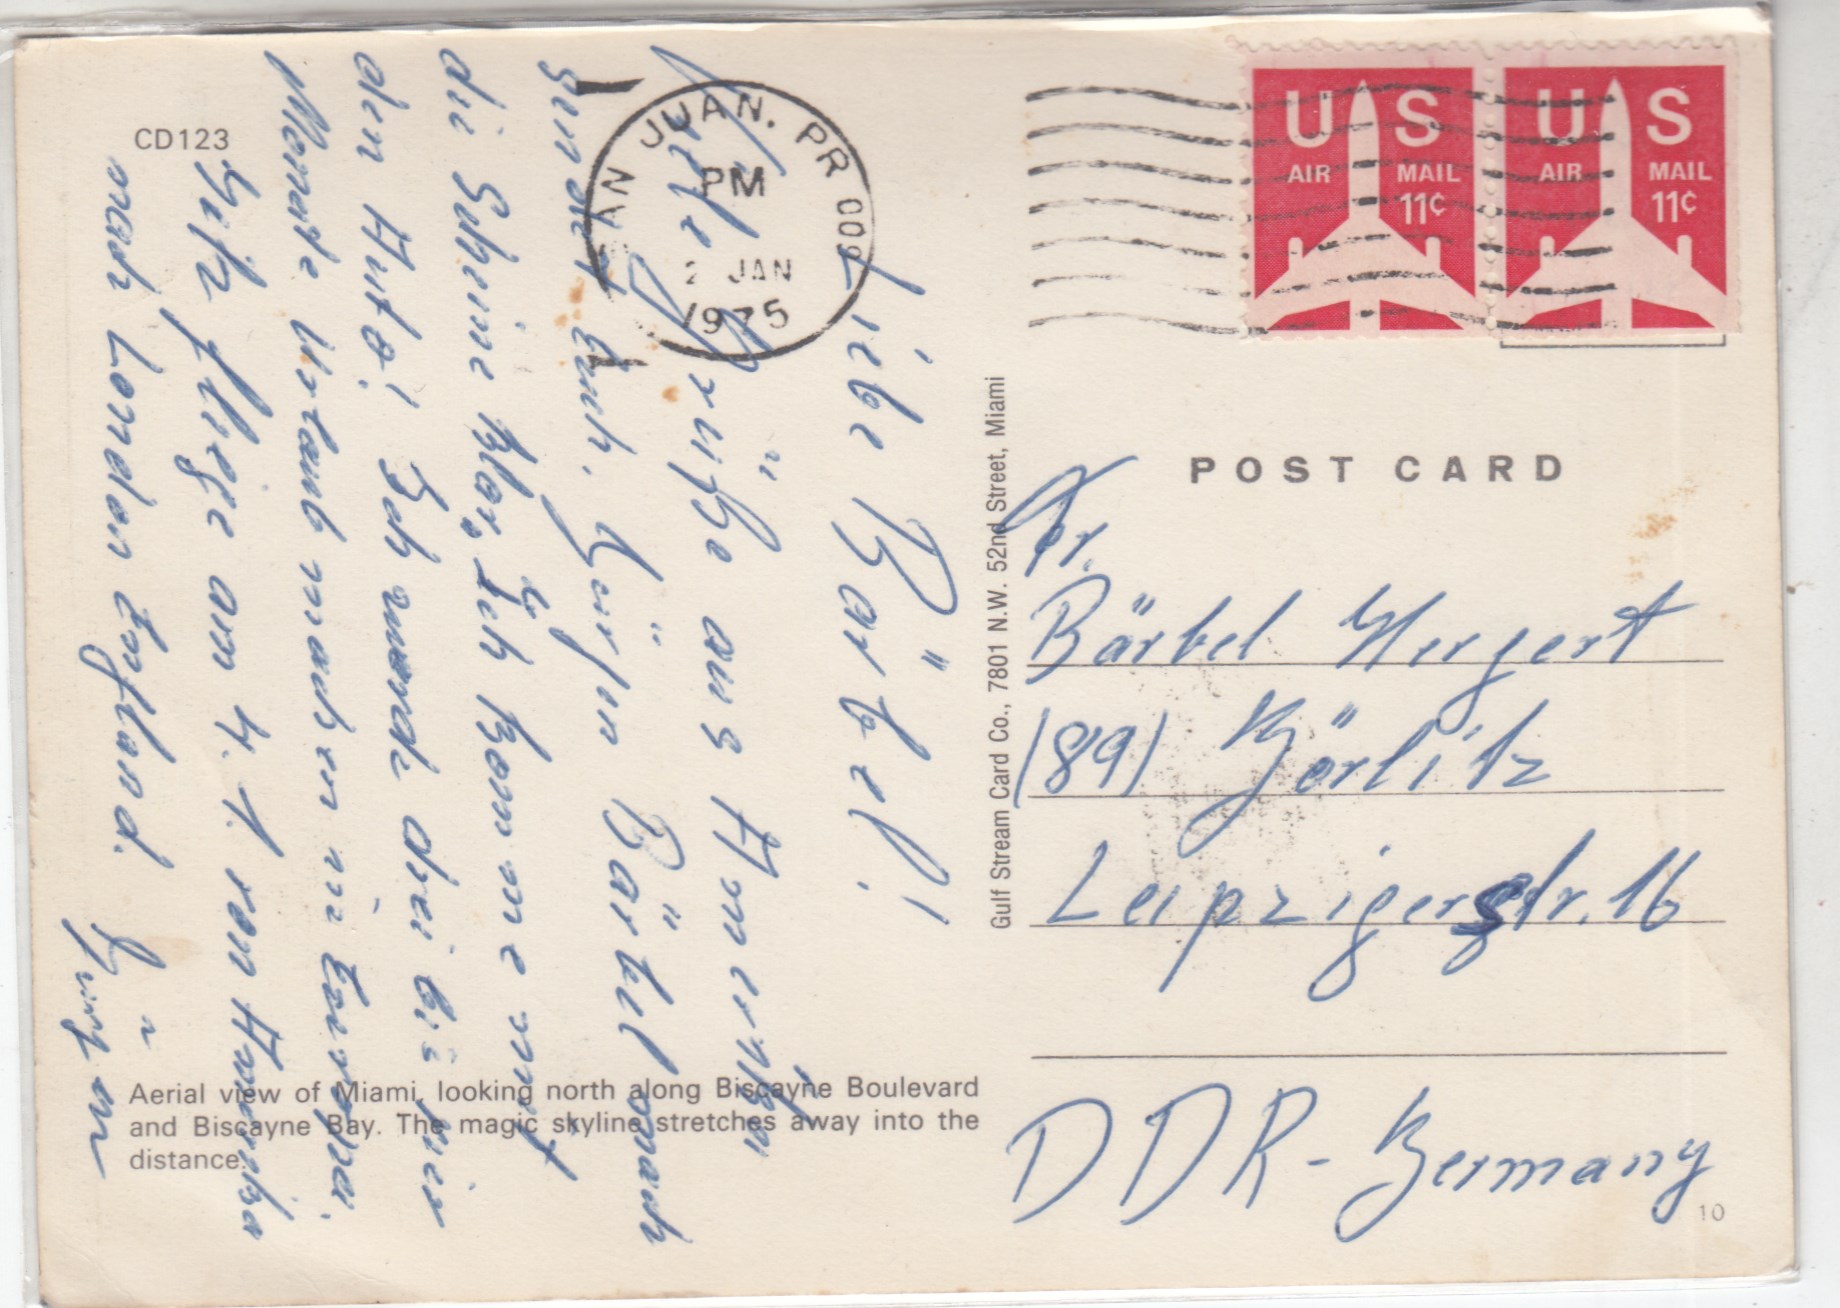 CD123
SAN JUAN, PR 009
PM
2 JAN
1975
U S
AIR MAIL
11¢
U S
AIR MAIL
11¢
Liebe Bärbel!
Viele Grüße aus Amerika
sendet Euch, Jürgen Bärbel mach
die Scheine klar, Ich komme mit
den Auto! Ich werde drei bis vier
Monate Urlaub machen in Europa.
Ich fliege am 4.1. von Amerika
nach London England. Jürgen
Gulf Stream Card Co., 7801 N.W. 52nd Street, Miami
POST CARD
Fr.
Bärbel Hergert
(89) Görlitz
Leipzigerstr. 16
DDR-Germany
Aerial view of Miami, looking north along Biscayne Boulevard
and Biscayne Bay. The magic skyline stretches away into the
distance.
10